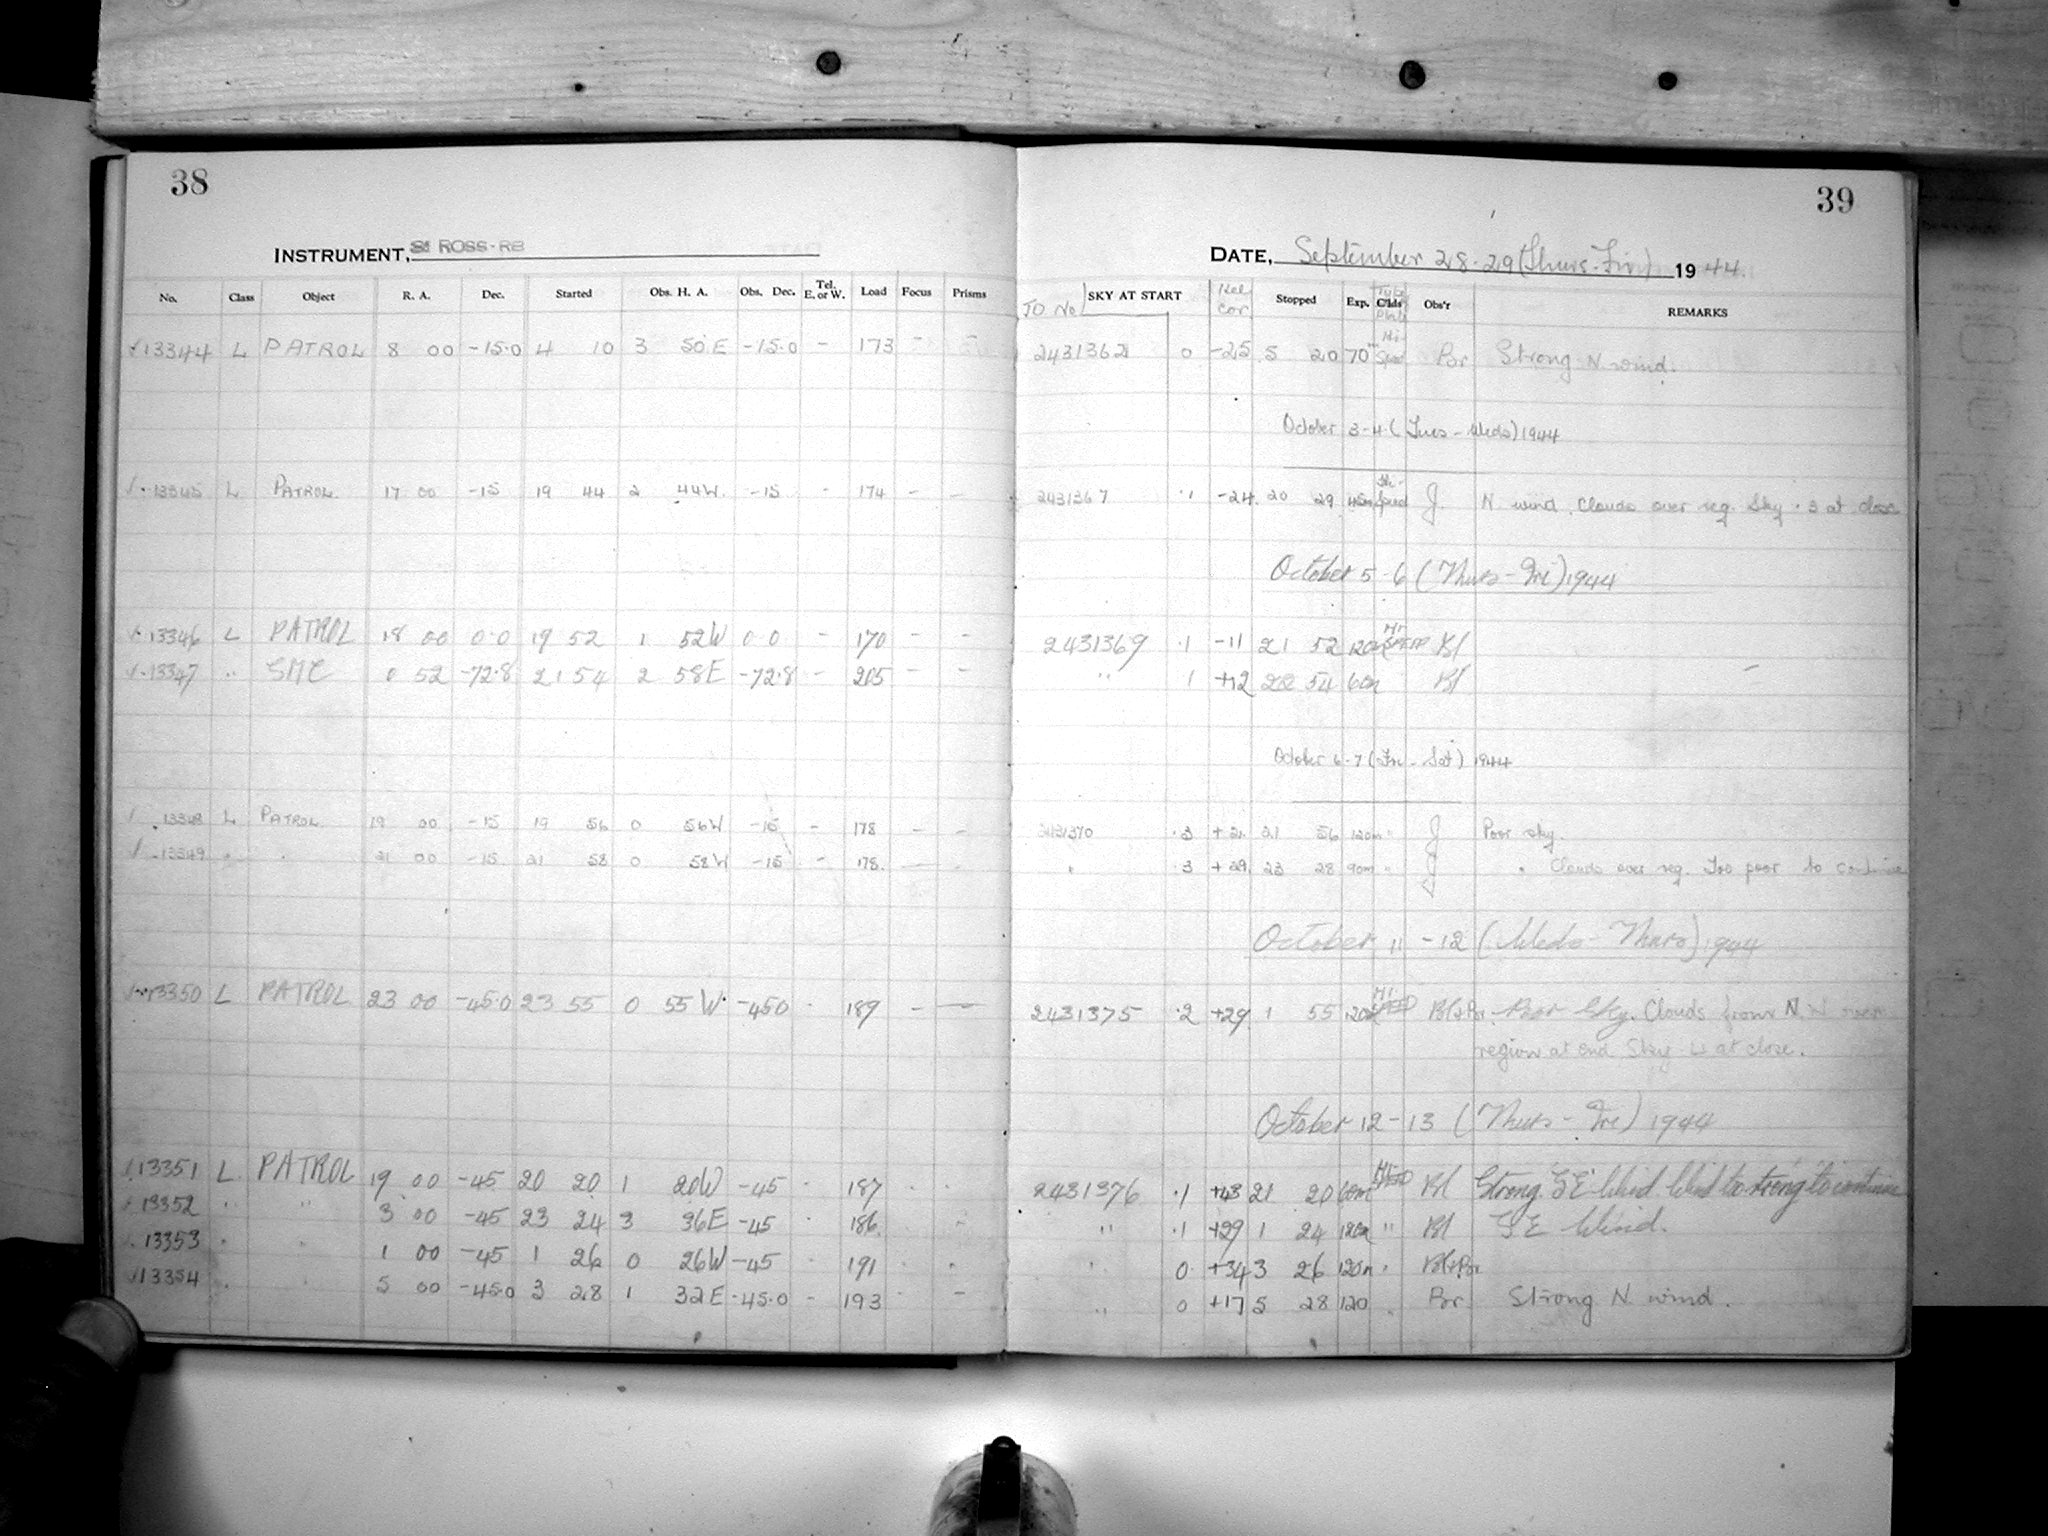 38
INSTRUMENT, ROSS-RB
No. Class Object R. A. Dec. Started Obs. H. A. Obs. Dec. Tel. E. or W. Load Focus Prisms
13344 L PATROL 8 00 -15.0 4 10 3 50 E -15.0 - 173 - -
13345 L PATROL 17 00 -15 19 44 2 44W. -15 - 174 - -
13346 L PATROL 18 00 0.0 19 52 1 52W 0 0 - 170 - -
13347 " SMC 0 52 -72.8 21 54 2 58E -72.8 - 205 - -
13348 L PATROL 19 00 -15 19 56 0 56W -15 - 178 - -
13349 " " 21 00 -15 21 58 0 58W -15 - 178. - -
13350 L PATROL 23 00 -45.0 23 55 0 55 W -450 - 189 - -
13351 L PATROL 19 00 -45 20 20 1 20W -45 - 187
13352 " " 3 00 -45 23 24 3 36E -45 - 186 -
13353 " " 1 00 -45 1 26 0 26W -45 - 191
13354 " " 5 00 -45.0 3 28 1 32E -45.0 - 193 -
39
DATE, September 28-29 (Thurs-Fri) 1944.
JD No SKY AT START Cor. Stopped Exp. Obs'r REMARKS
2431362 0 -25 5 20 70 Hi-Speed Por Strong N. wind.
October 3-4 (Tues - Weds) 1944
2431367 .1 -24 20 29 45m Speed J. N wind. Clouds over reg. Sky .3 at close
October 5-6 (Thurs-Fri) 1944
2431369 .1 -11 21 52 120m HI-SPEED Bl
" 1 +12 22 54 60m Bl
October 6-7 (Fri - Sat) 1944
2431370 .3 +21 21 56 120m " J Poor sky.
" .3 +29. 23 28 90m " J " Clouds over reg. Too poor to continue
October 11-12 (Weds-Thurs) 1944
2431375 .2 +29 1 55 120m HI-SPEED Bl&Por Poor Sky. Clouds from N. W over
region at end Sky at close.
October 12-13 (Thurs-Fri) 1944
2431376 .1 +43 21 20 60m Bl Strong SE Wind Wind too strong to continue
" .1 +29 1 24 120m " Bl SE Wind.
" 0 +34 3 26 120m " Bl&Por
" 0 +17 5 28 120 " Por. Strong N wind.